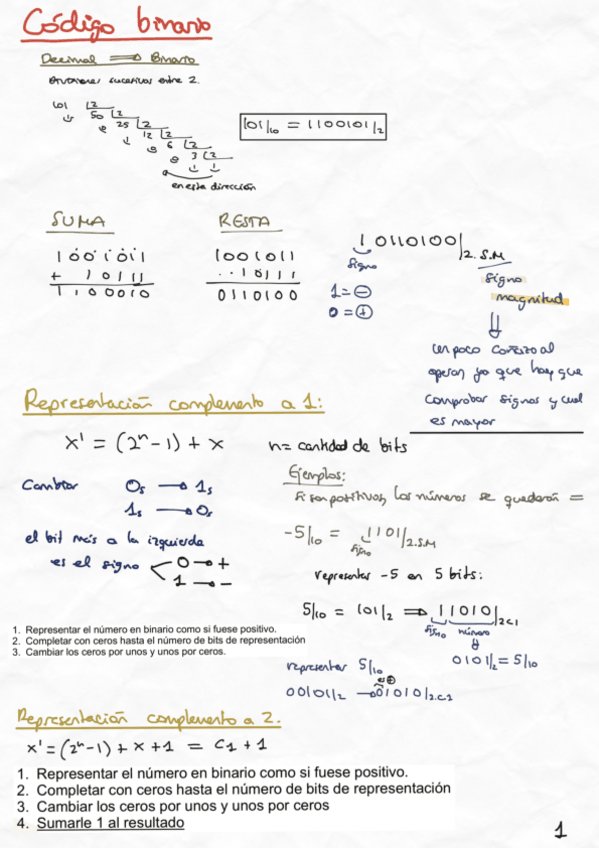 Código binario
Decimal ⟹ Binario
Divisiones sucesivas entre 2.
101 | 2
1 50 | 2
0 25 | 2
1 12 | 2
0 6 | 2
0 3 | 2
1 1
en esta dirección
101/10 = 1100101/2
SUMA
1001011
+ 10111
1100010
RESTA
1001011
10111
0110100
1 0110100/2.S.M
signo
1 = ⊖
0 = ⊕
signo
magnitud
⇓
un poco
al
operar, ya que hay que
comprobar signos y cual
es mayor
Representación complemento a 1:
x' = (2ⁿ-1) + x
n = cantidad de bits
Cambiar 0s → 1s
1s → 0s
el bit más a la izquierda
es el signo < 0 → +
1 → -
Ejemplos:
Si son positivos, los números se quedarán =
-5/10 = 1101/2.S.M
signo
representar -5 en 5 bits:
5/10 = 101/2 ⟹ 11010/2C1
signo número
⇓
0101/2 = 5/10
representar 5/10
es ⊕
00101/2 → 01010/2.C.2
1. Representar el número en binario como si fuese positivo.
2. Completar con ceros hasta el número de bits de representación
3. Cambiar los ceros por unos y unos por ceros.
Representación complemento a 2.
x' = (2ⁿ-1) + x + 1 = C1 + 1
1. Representar el número en binario como si fuese positivo.
2. Completar con ceros hasta el número de bits de representación
3. Cambiar los ceros por unos y unos por ceros
4. Sumarle 1 al resultado
1